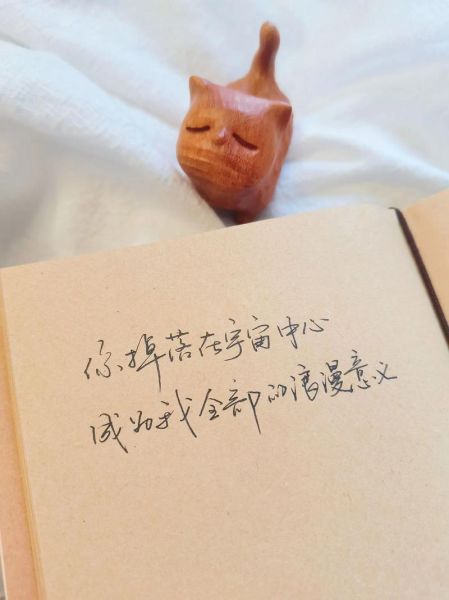 你掉落在宇宙中心
成为我全部的浪漫意义